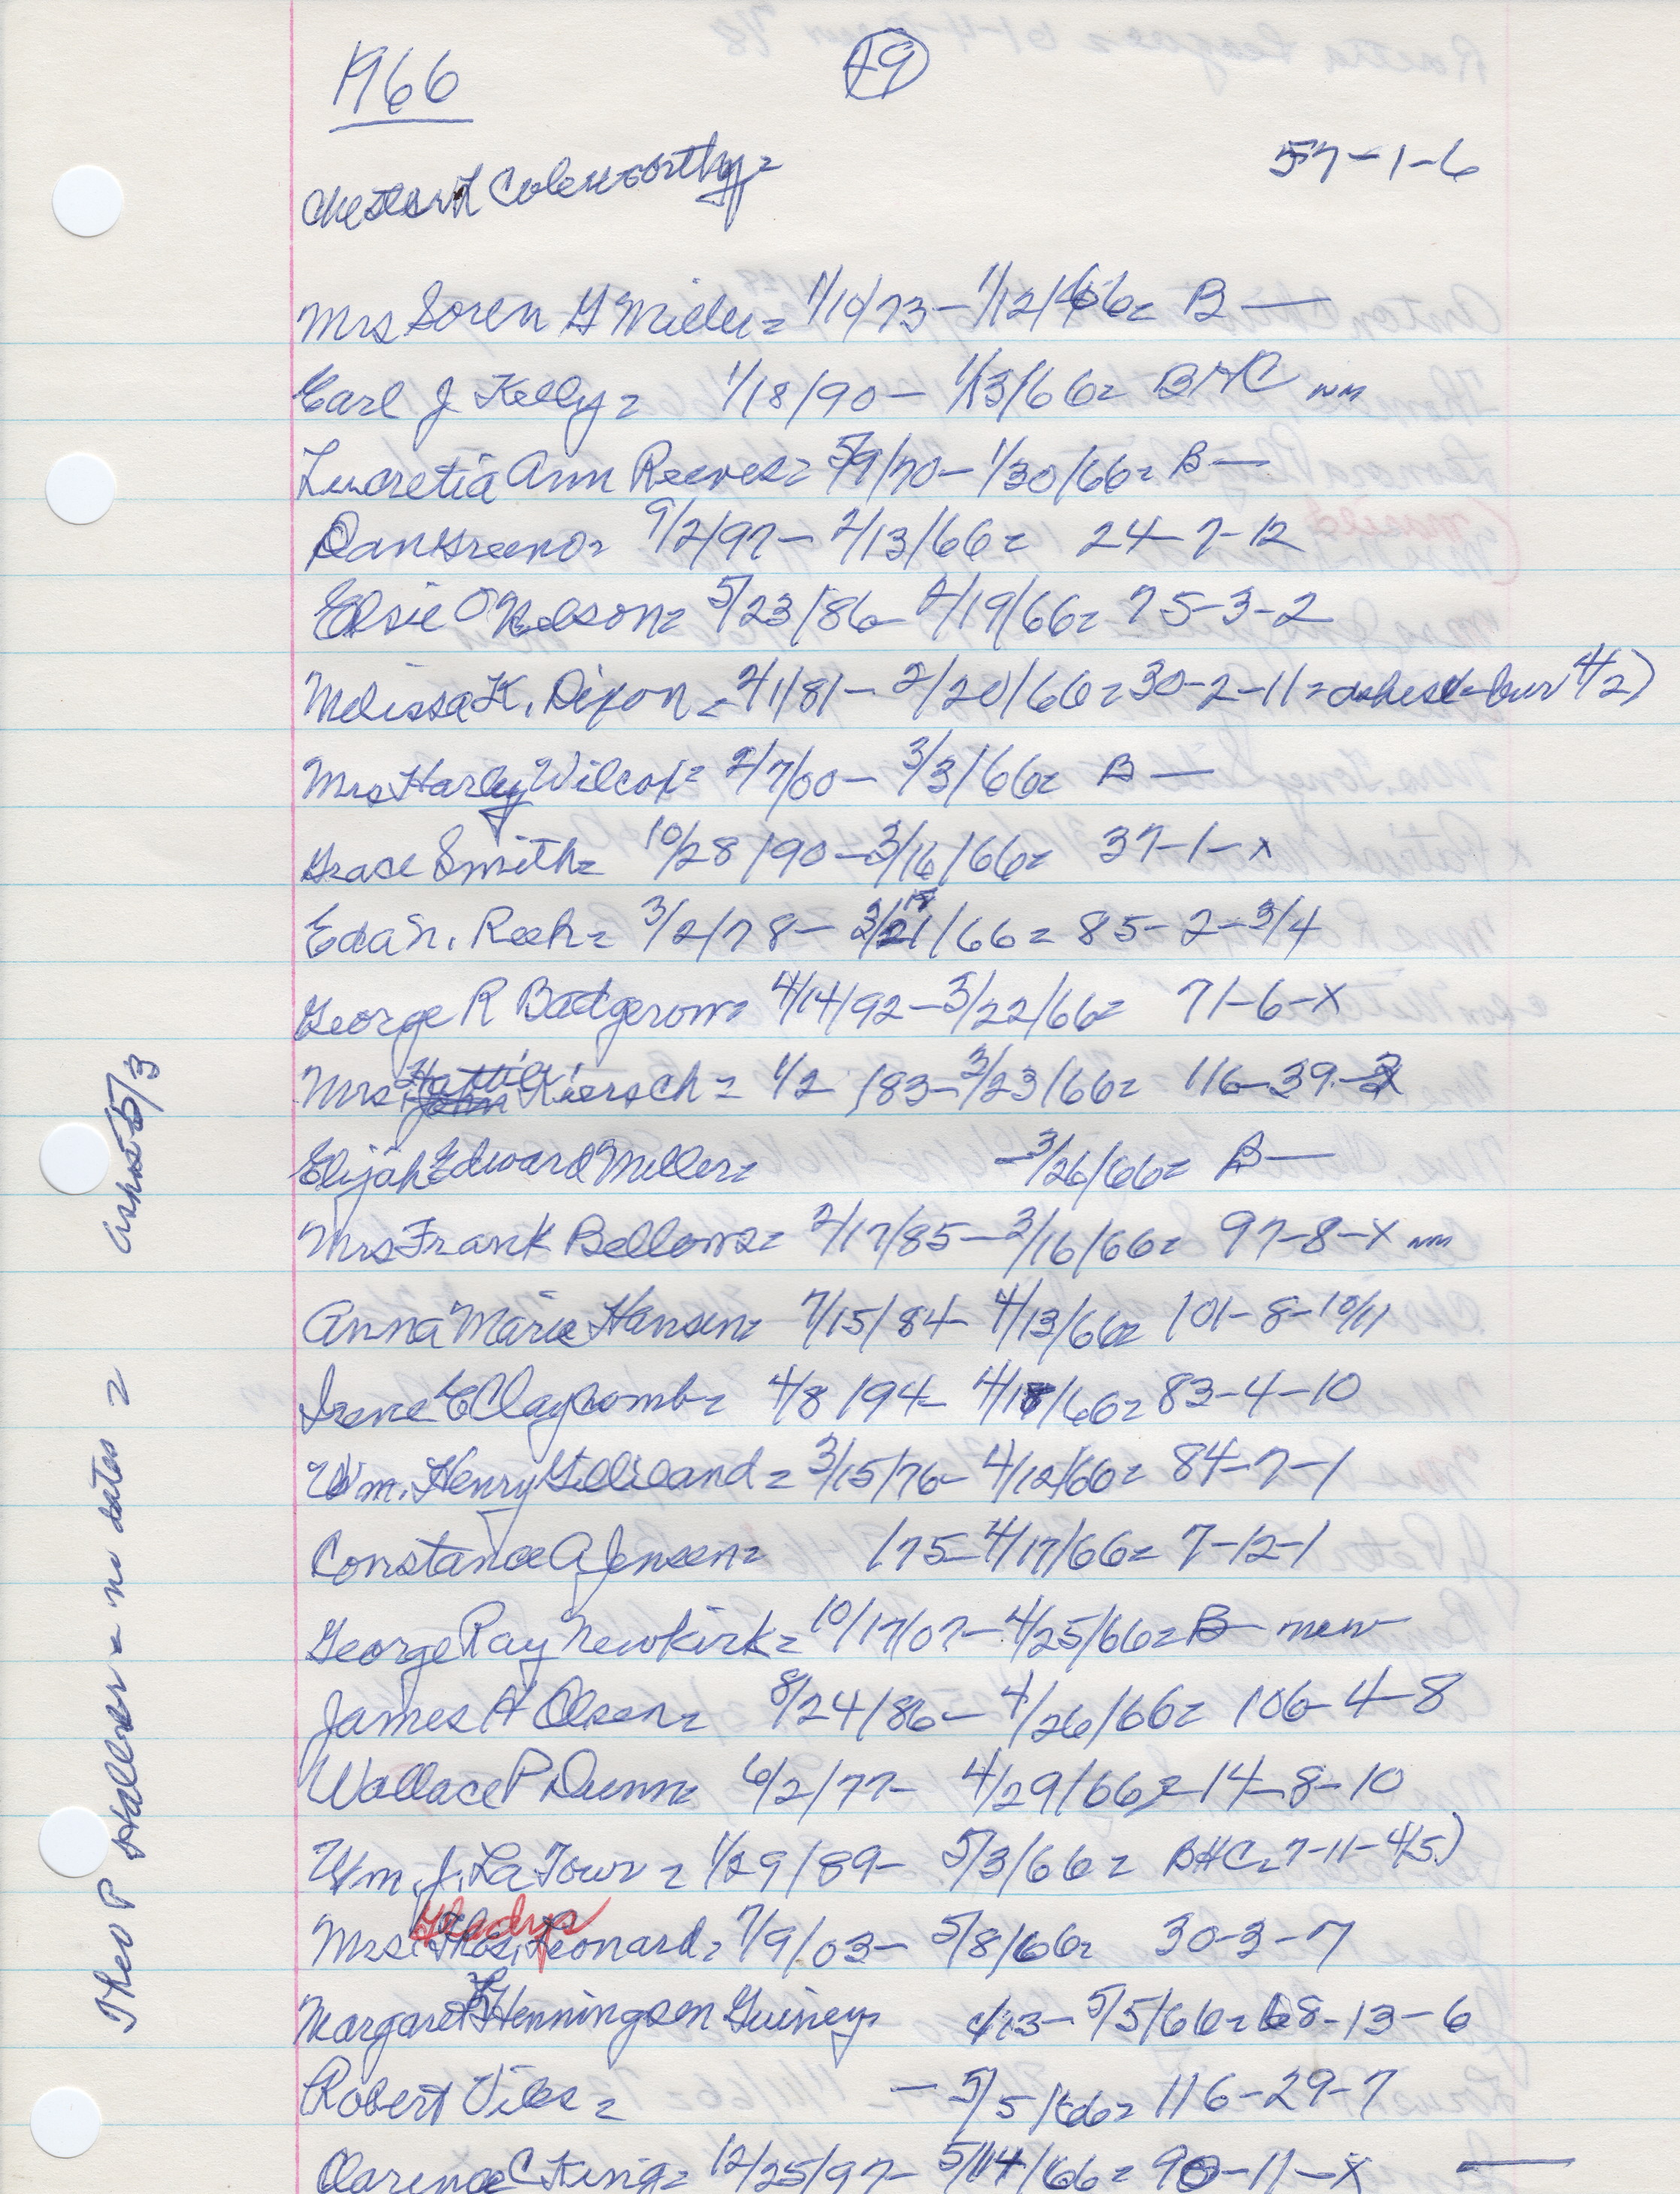 1966 49
Colesworthy = 57-1-6
Mrs Soren G Miller = 1/10/73 - 1/12/66 = B —
Earl J Kelly = 1/18/90 - 1/13/66 = BHC nm
Lucretia Ann Reeves = 5/9/70 - 1/30/66 = B —
Dan Greeno = 9/2/97 - 2/13/66 = 24-7-12
Elsie O Nelson = 5/23/86 - 2/19/66 = 75-3-2
Melissa K. Dixon = 2/1/81 - 2/20/66 = 30-2-11 = ashes - bur 4/2)
Mrs Harley Wilcox = 2/7/00 - 3/3/66 = B —
Grace Smith = 10/28/90 - 3/16/66 = 37-1-x
Eda N. Reeh = 3/2/78 - 3/21/66 = 85-2-3/4
George R Badgerow = 4/14/92 - 3/22/66 = 71-6-X
Mrs. Hattie John Kiersch = 1/2 /83 - 3/23/66 = 116-39-
Elijah Edward Miller = - 3/26/66 = B —
Mrs Frank Bellows = 2/17/85 - 3/16/66 = 97-8-X nm
Anna Marie Hansen = 7/15/84 - 4/13/66 = 101-8-10/11
Irene E Claycomb = 4/8/94 - 4/18/66 = 83-4-10
Wm. Henry Gilliland = 3/15/76 - 4/12/66 = 84-7-1
Constance A Jensen = /75 - 4/17/66 = 7-12-1
George Ray Newkirk = 10/17/07 - 4/25/66 = B - new
James H Olsen = 8/24/86 - 4/26/66 = 106-4-8
Wallace P Dunn = 6/2/77 - 4/29/66 = 14-8-10
Wm. J. La Tour = 1/29/89 - 5/3/66 = BHC = 7-11-4/5)
Mrs. Gladys Thos. Leonard = 7/9/03 - 5/8/66 = 30-3-7
Margaret Henningsen Guiney = - 5/5/66 = 68-13-6
Robert Viles = - 5/5/66 = 116-29-7
Clarence C King = 12/25/97 - 5/14/66 = 90-11-X —
Theo P Hallser = no dates = ashes 5/3